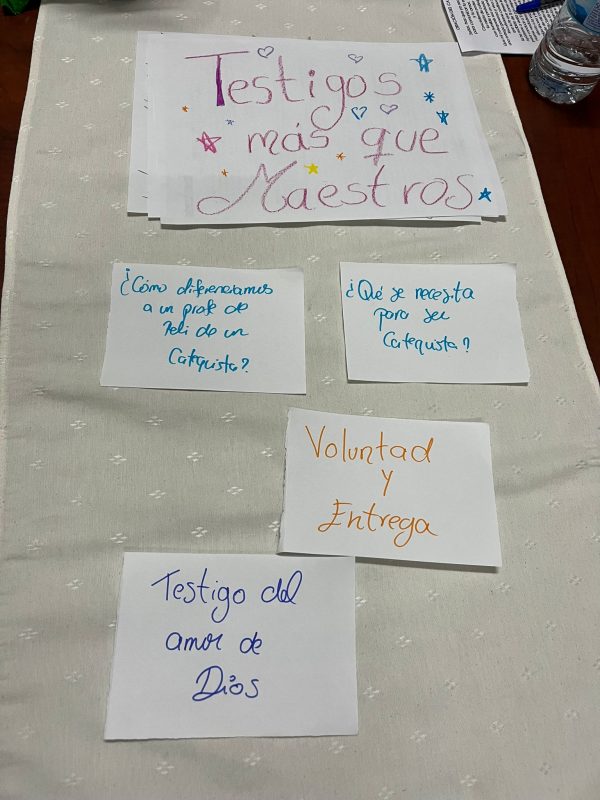 Testigos
más que
Maestros
¿Cómo diferenciamos
a un profe de
Reli de un
Catequista?
¿Qué se necesita
para ser
Catequista?
Voluntad
y
Entrega
Testigo del
amor de
Dios